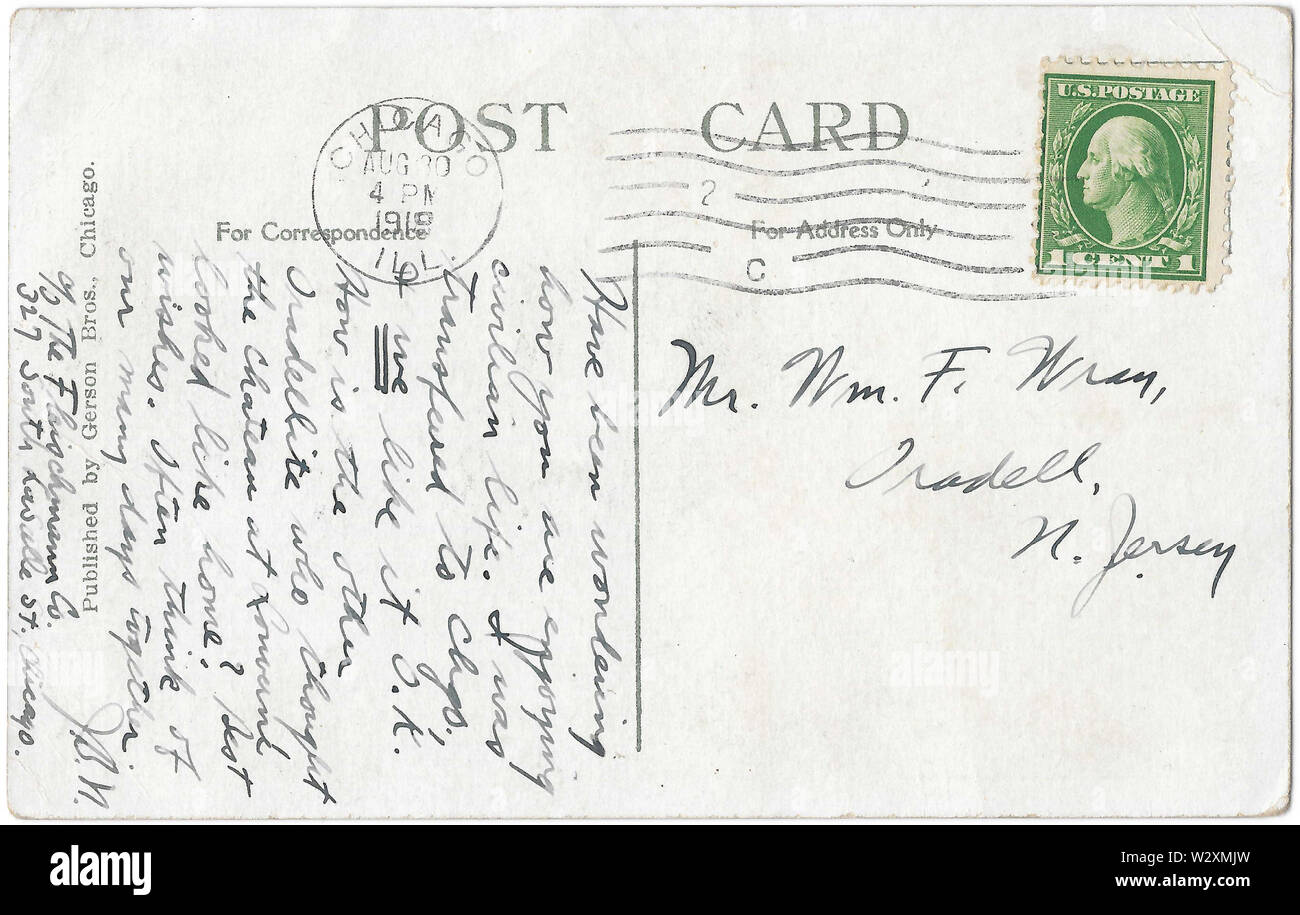 POST CARD
CHICAGO
AUG 30
4 PM
1919
ILL.
2
C
For Correspondence
For Address Only
U.S. POSTAGE
1 CENT 1
Mr. Wm. F. Wray,
Oradell,
N. Jersey
Have been wondering
how you are enjoying
civilian life. I was
transfered to Chgo.,
& we like it O.K.
How is the other
Oradellite who thought
the chateau at
looked like home? Best
wishes. Often think of
our many days together.
J.B.W.
% The Fleischmann Co.
327 South LaSalle St., Chicago.
Published by Gerson Bros., Chicago.
alamy
Image ID: W2XMJW
www.alamy.com